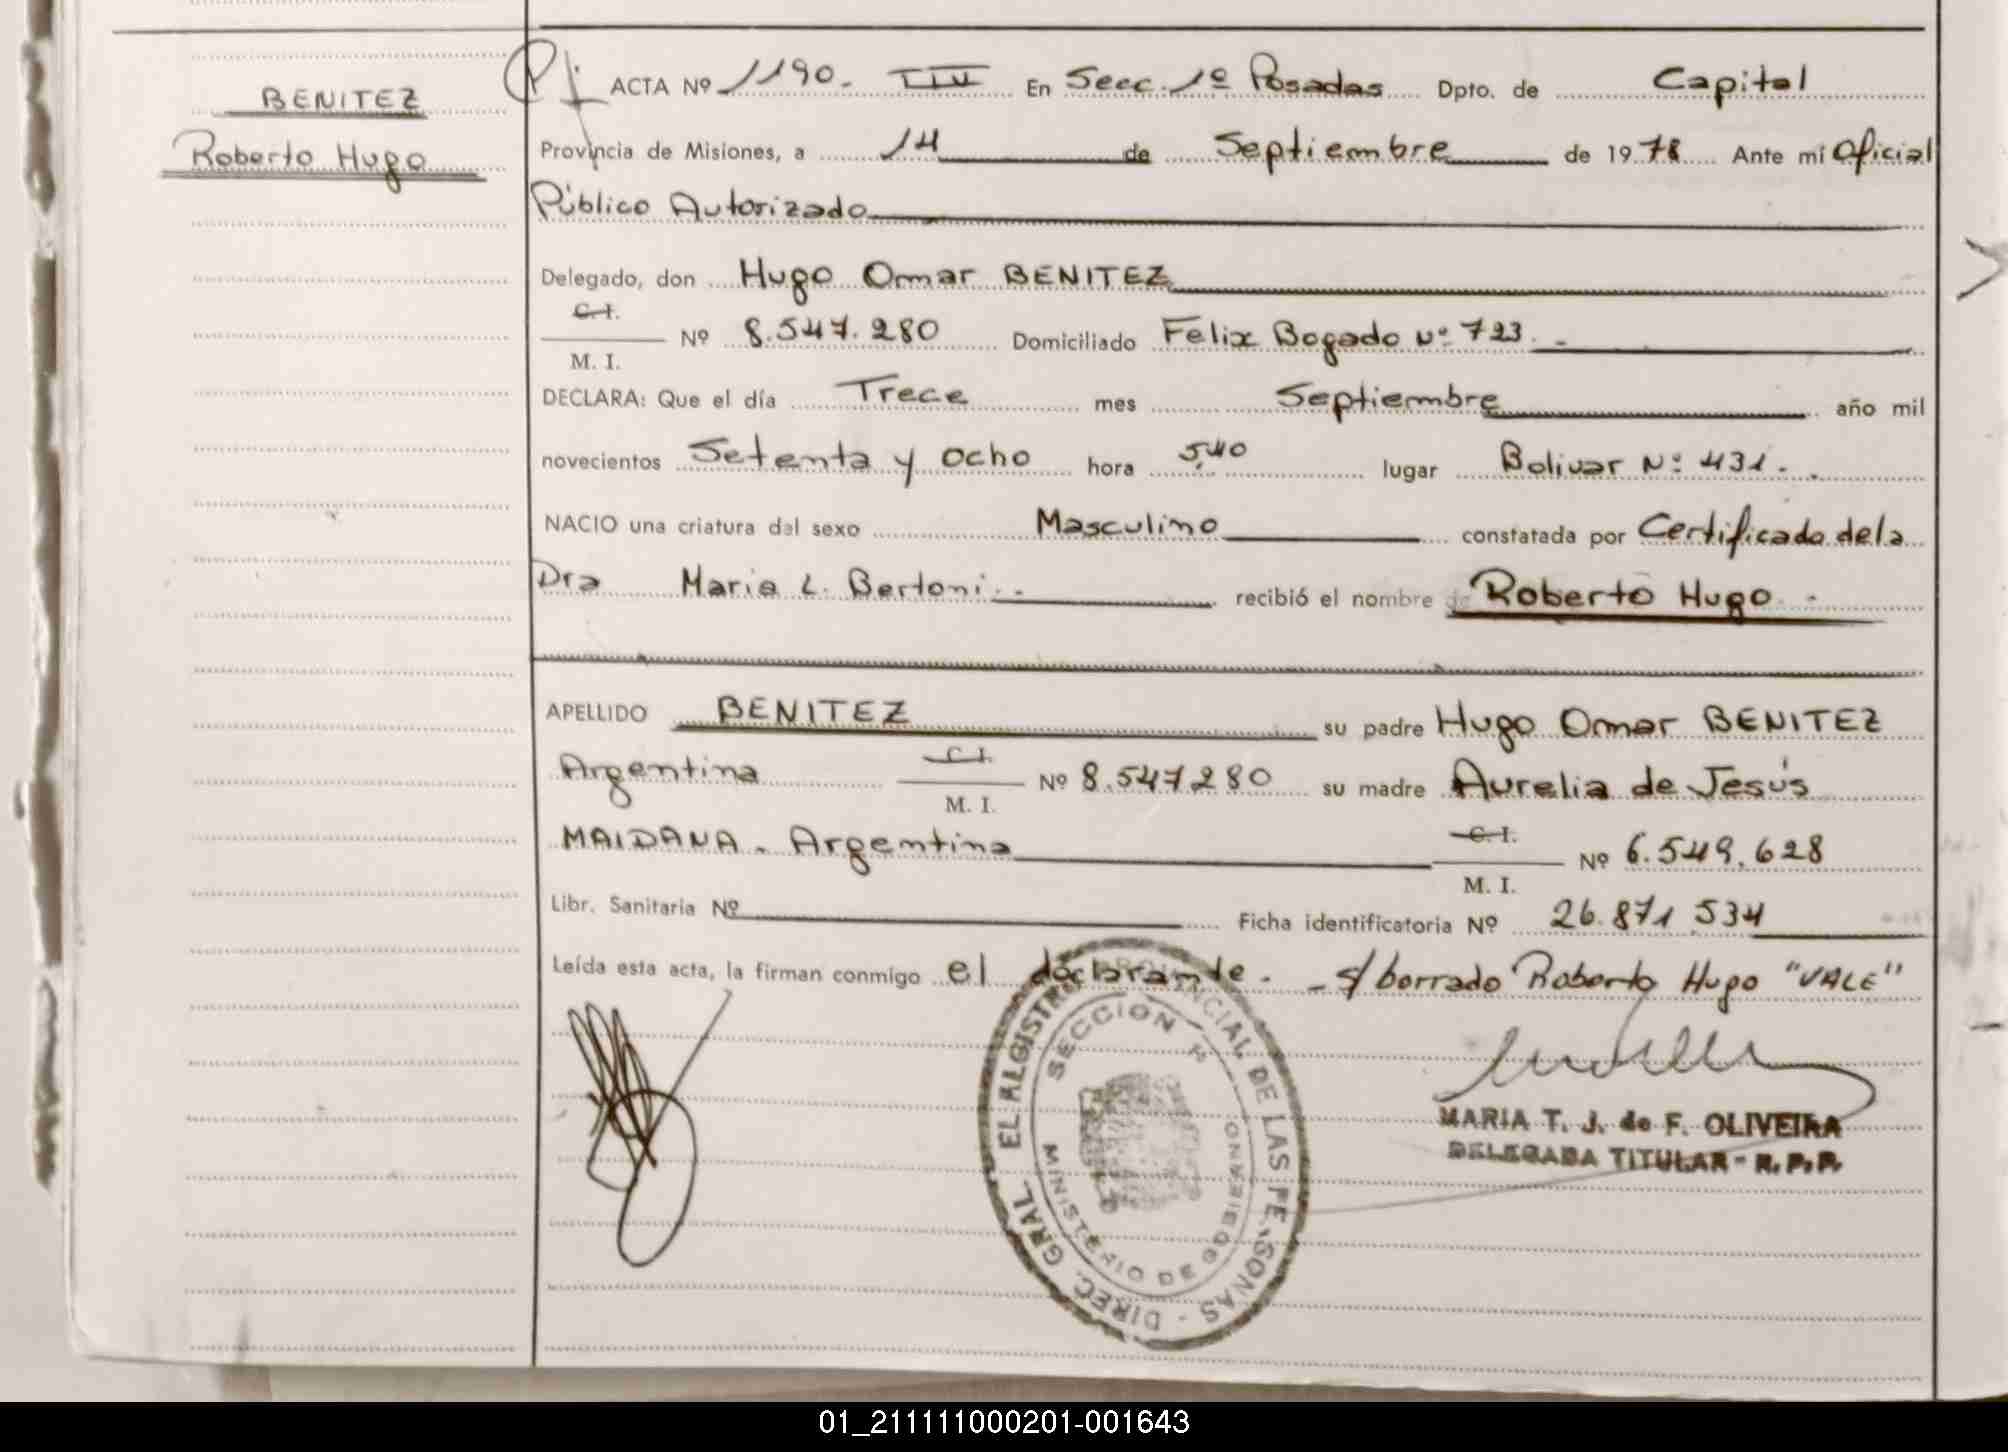 BENITEZ
Roberto Hugo
ACTA Nº 1190. TIII En Secc. 1º Posadas Dpto. de Capital
Provincia de Misiones, a 14 de Septiembre de 1978 Ante mi Oficial
Público Autorizado
Delegado, don Hugo Omar BENITEZ
C.I.
M. I.
Nº 8.547.280 Domiciliado Felix Bogado Nº 723.-
DECLARA: Que el día Trece mes Septiembre año mil
novecientos Setenta y Ocho hora 5,40 lugar Bolivar Nº 431.-
NACIO una criatura del sexo Masculino constatada por Certificado de la
Dra Maria L. Bertoni.- recibió el nombre de Roberto Hugo -
APELLIDO BENITEZ su padre Hugo Omar BENITEZ
Argentina C.I. M. I. Nº 8.547280 su madre Aurelia de Jesús
MAIDANA. Argentina C.I. M. I. Nº 6.549.628
Libr. Sanitaria Nº Ficha identificatoria Nº 26.871 534
Leída esta acta, la firman conmigo el declarante. - s/borrado Roberto Hugo "VALE"
DIREC. GRAL. EL REGISTRO PROVINCIAL DE LAS PERSONAS -
SECCION 1ª
MINISTERIO DE GOBIERNO
MARIA T. J. de F. OLIVEIRA
DELEGADA TITULAR - R.P.P.
01_211111000201-001643